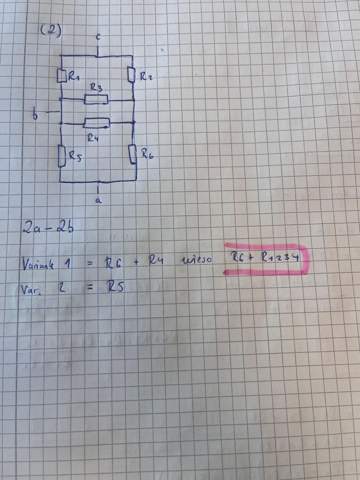 (2)
c
R1
R2
R3
b
R4
R5
R6
a
2a-2b
Variante 1 = R6 + R4 wieso R6 + R1234
Var. 2 = R5